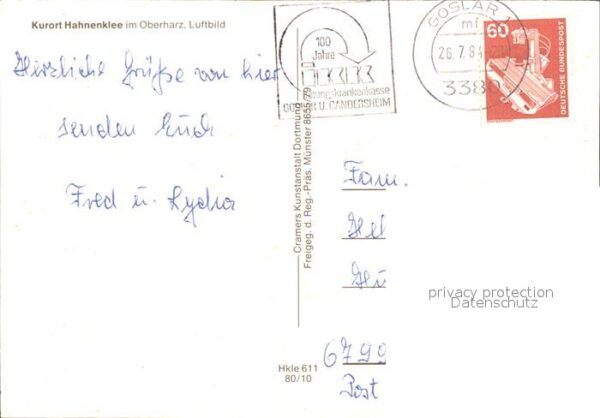 Kurort Hahnenklee im Oberharz, Luftbild
Herzliche Grüße von hier
senden Euch
Fred u. Lydia
100
Jahre
IKK
Innungskrankenkasse
GOSLAR U. GANDERSHEIM
GOSLAR 1
mf
26.7.84
3380
60
DEUTSCHE BUNDESPOST
Cramers Kunstanstalt Dortmund
Freigeg. d. Reg.-Präs. Münster 8655/79
Fam.
Hel
Hu
privacy protection
Datenschutz
6799
Post
Hkle 611
80/10